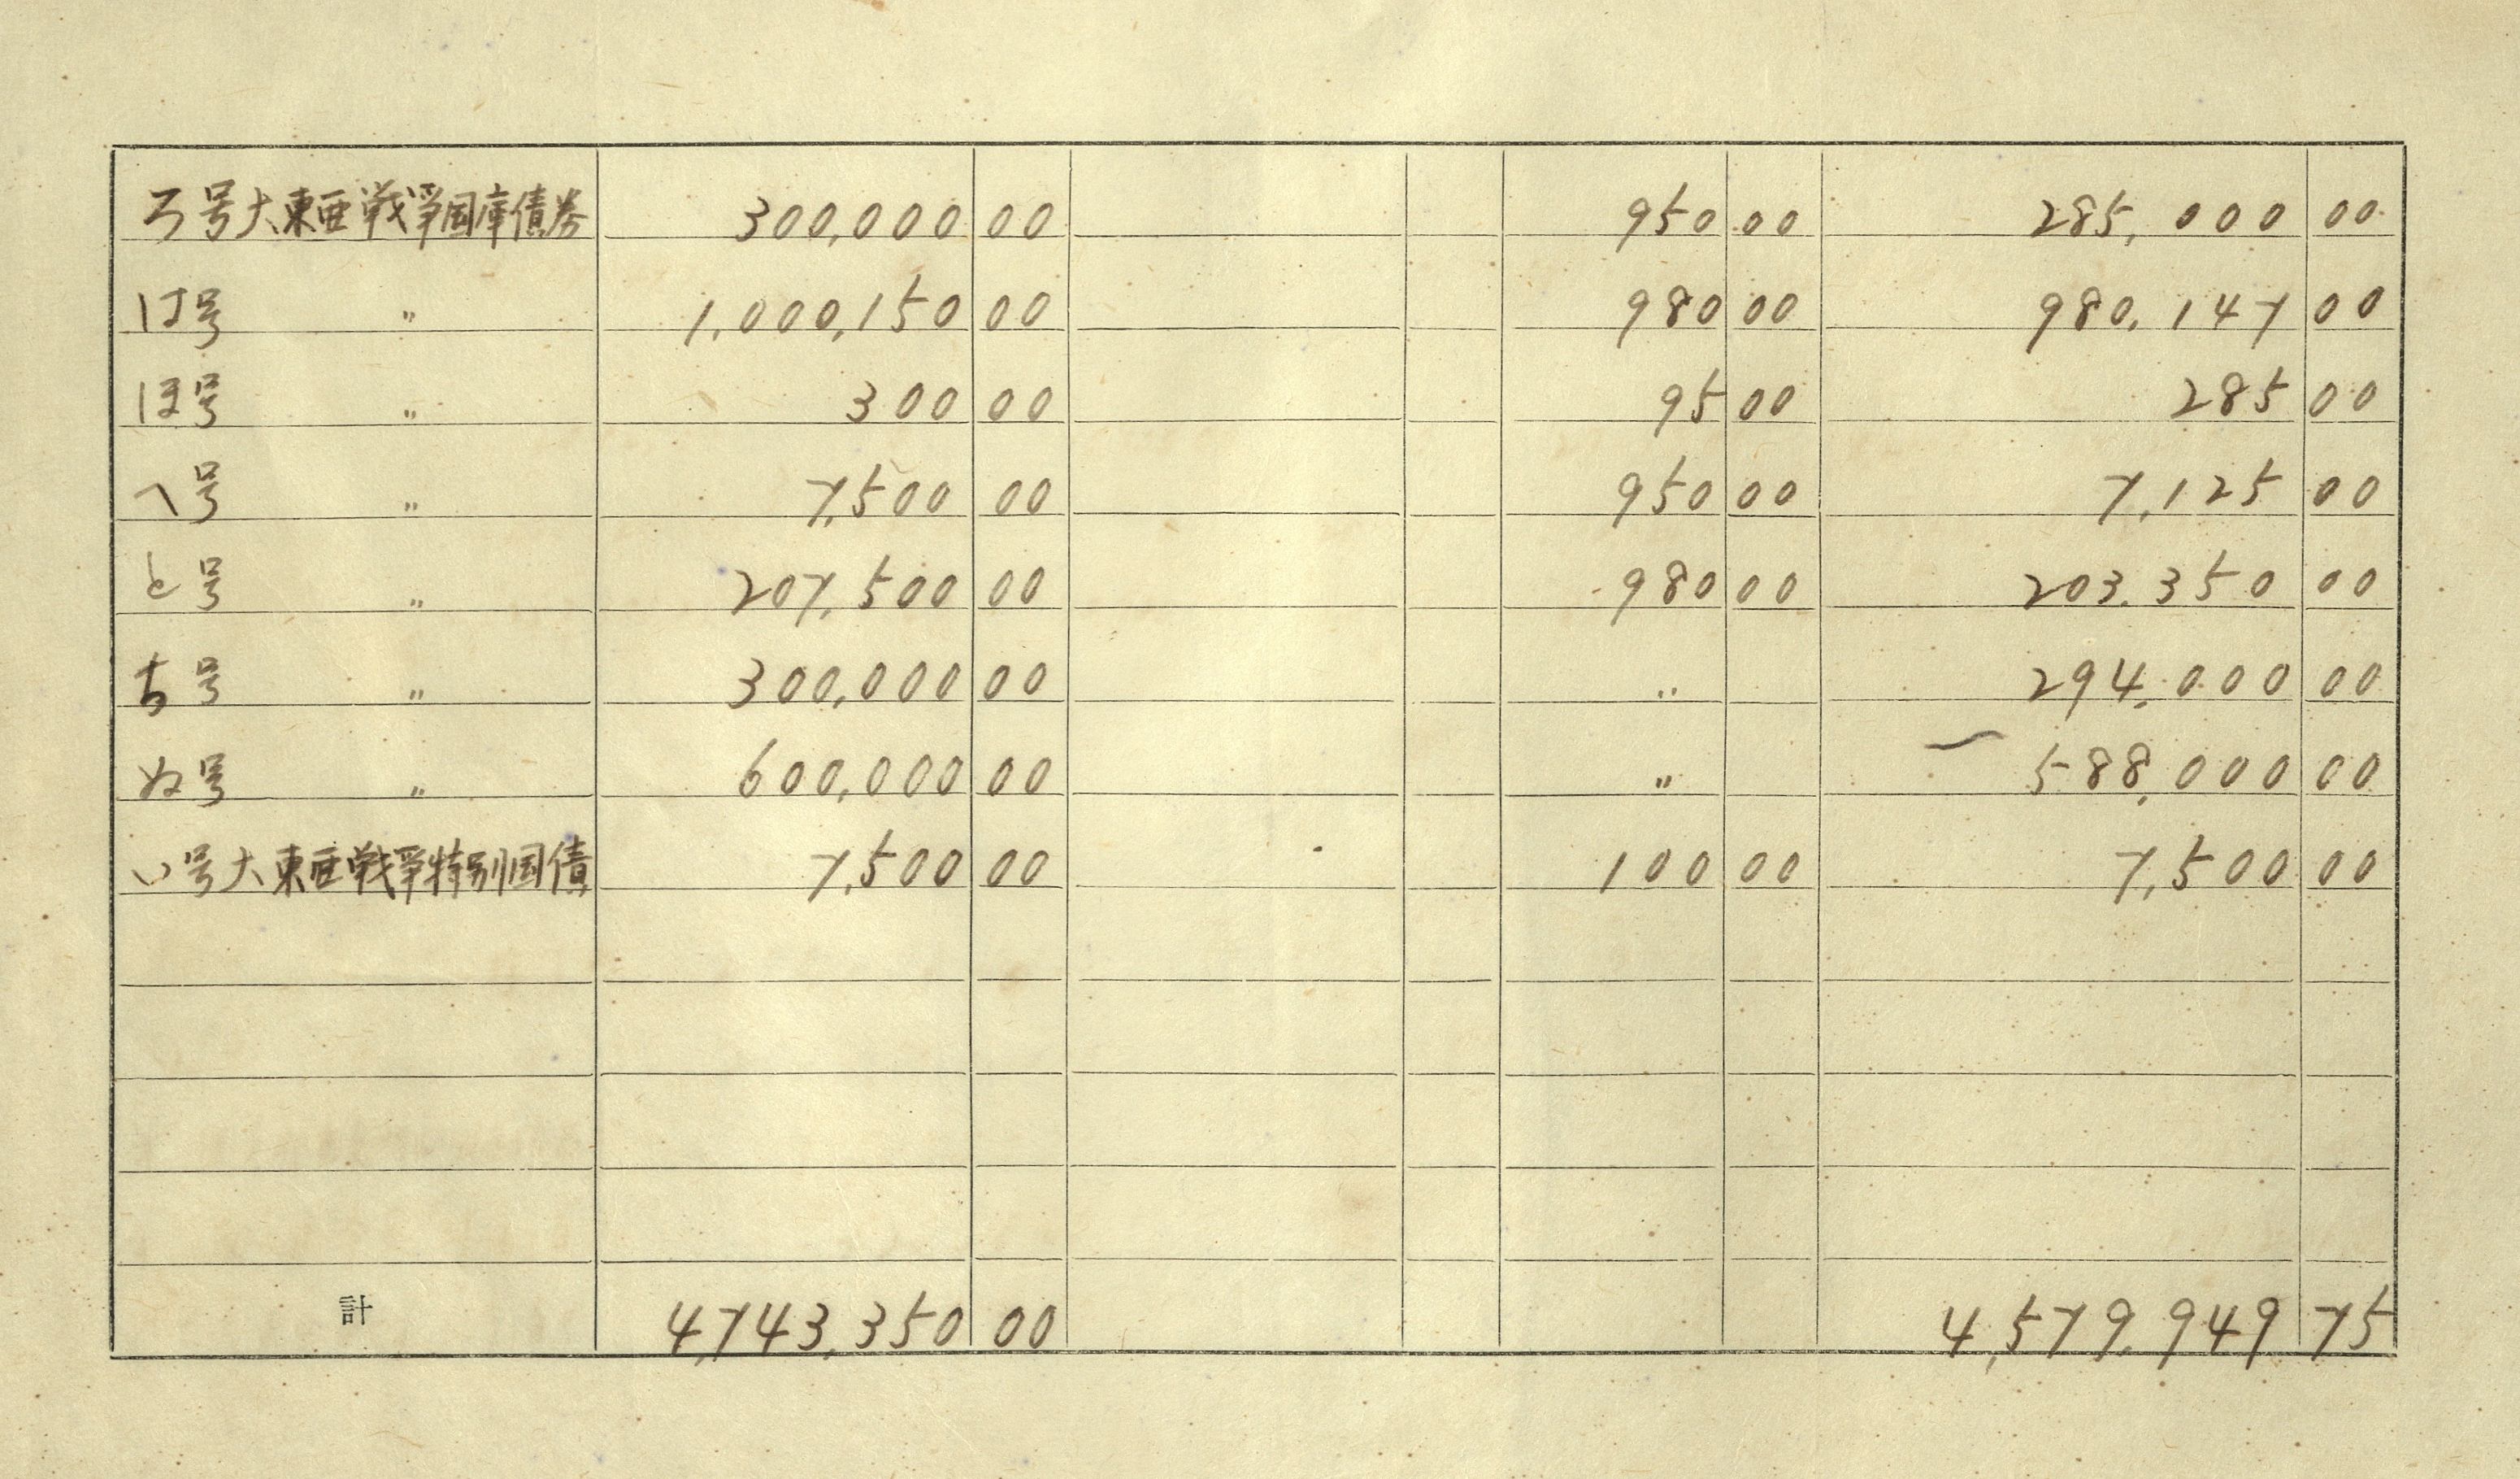 ろ号大東亜戦争国庫債券 300,000 00 950 00 285,000 00
は号 〃 1,000,150 00 980 00 980,147 00
ほ号 〃 300 00 95 00 285 00
へ号 〃 7,500 00 950 00 7,125 00
と号 〃 207,500 00 980 00 203.350 00
ち号 〃 300,000 00 〃 294,000 00
ぬ号 〃 600,000 00 〃 588,000 00
い号大東亜戦争特別国債 7,500 00 100 00 7,500 00
計 4,743,350 00 4,579,949 75